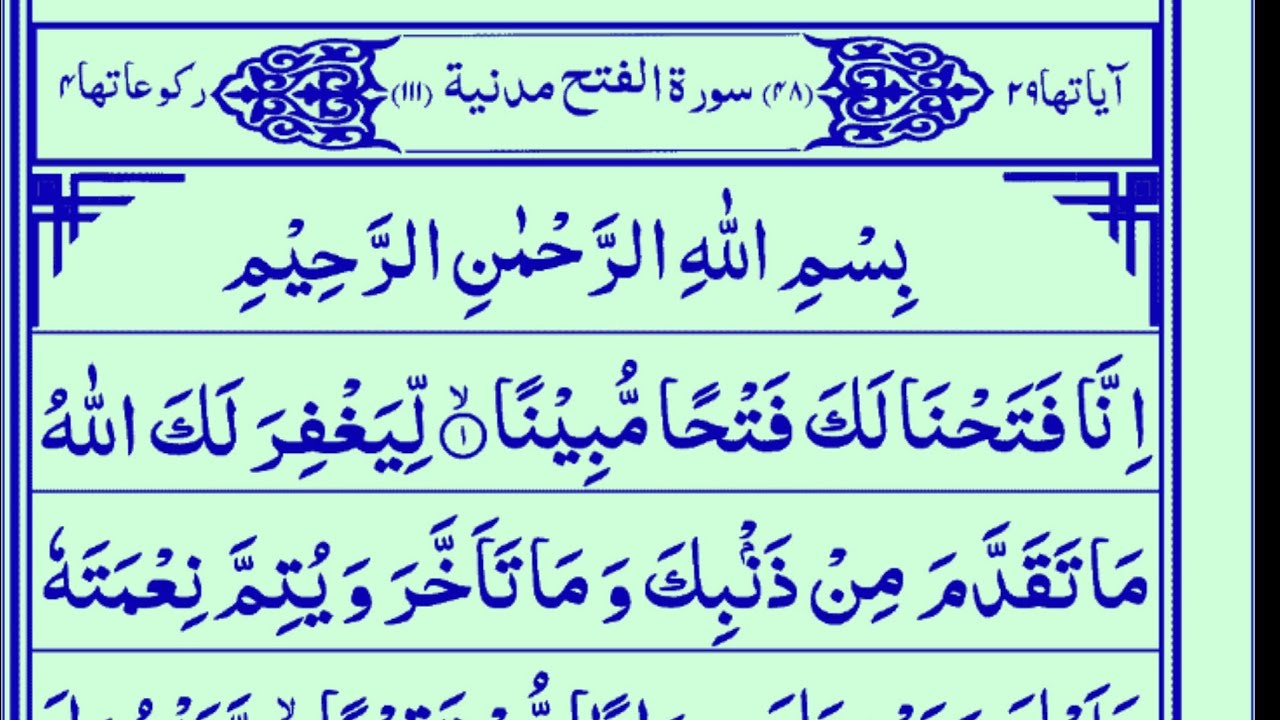 آیاتها۲۹ (۴۸) سورة الفتح مدنية (۱۱۱) رکوعاتها۴
بِسْمِ اللّٰهِ الرَّحْمٰنِ الرَّحِيْمِ
اِنَّا فَتَحْنَا لَكَ فَتْحًا مُّبِيْنًا ۙ۱ لِّيَغْفِرَ لَكَ اللّٰهُ
مَا تَقَدَّمَ مِنْ ذَنْۢبِكَ وَ مَا تَاَخَّرَ وَ يُتِمَّ نِعْمَتَهٗ